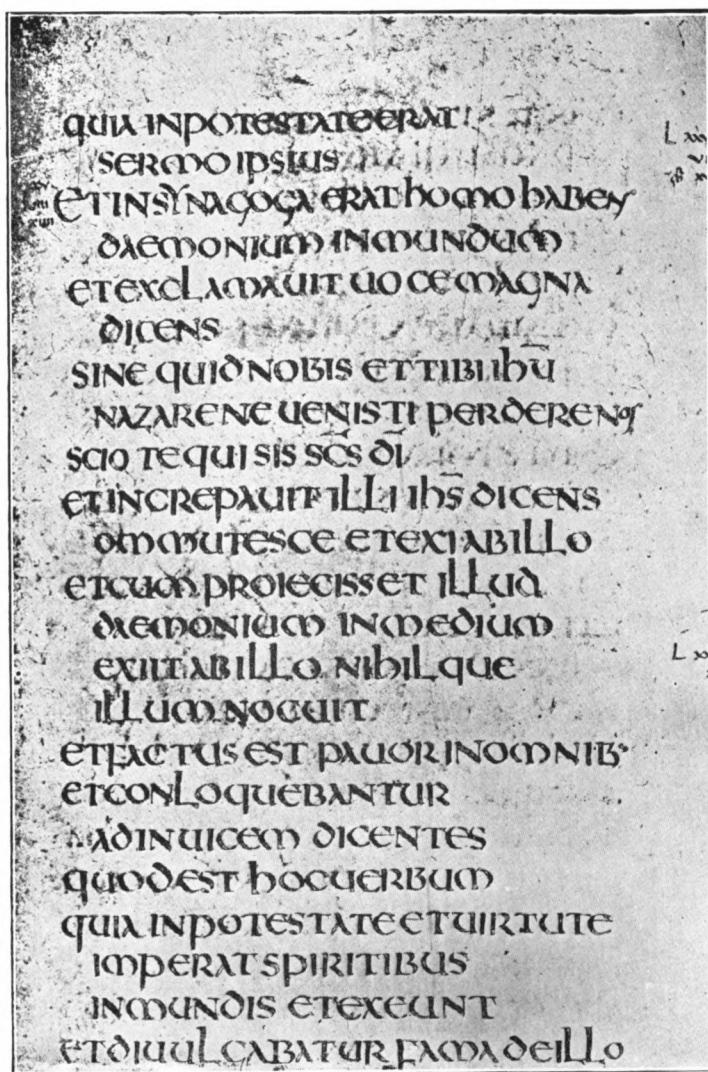 QUIA INPOTESTATE ERAT
SERMO IPSIUS
ET IN SYNAGOGA ERAT HOMO HABENS
DAEMONIUM INMUNDUM
ET EXCLAMAUIT UOCE MAGNA
DICENS
SINE QUID NOBIS ET TIBI IHU̅
NAZARENE UENISTI PERDERE NOS
SCIO TE QUI SIS SC̅S DI̅
ET INCREPAUIT ILLI IHS̅ DICENS
OMMUTESCE ET EXI AB ILLO
ET CUM PROIECISSET ILLUD
DAEMONIUM IN MEDIUM
EXIIT AB ILLO NIHILQUE
ILLUM NOCUIT
ET FACTUS EST PAUOR IN OMNIB·
ET CONLOQUEBANTUR
AD INUICEM DICENTES
QUOD EST HOC UERBUM
QUIA IN POTESTATE ET UIRTUTE
IMPERAT SPIRITIBUS
INMUNDIS ET EXEUNT
ET DIUULGABATUR FAMA DE ILLO